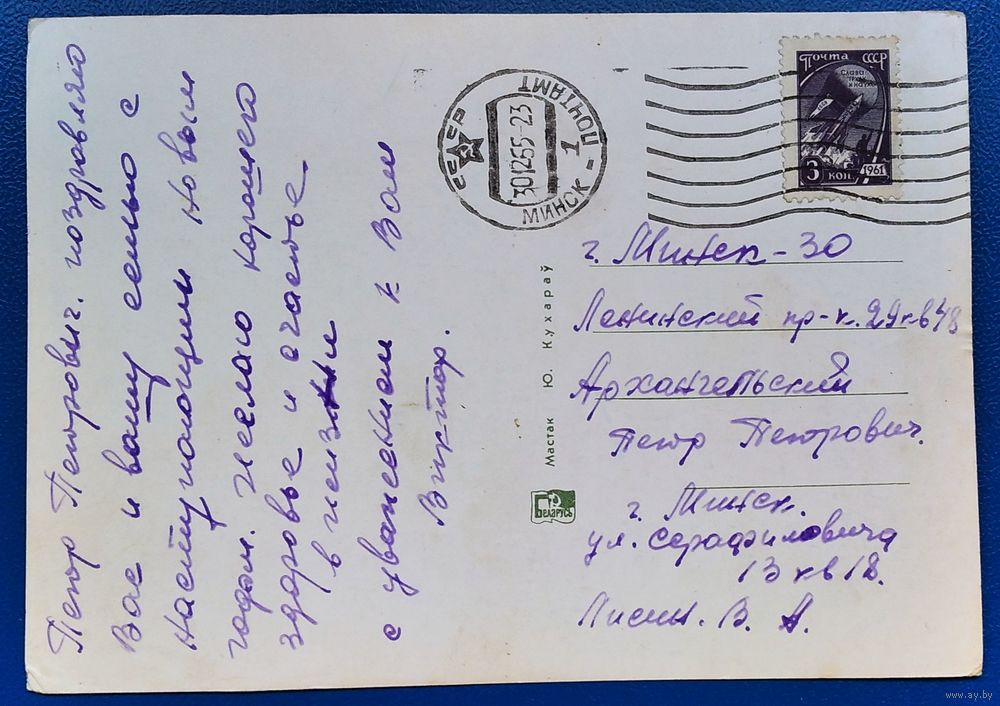 Петр Петрович. поздравляю
Вас и вашу семью с
наступающим новым
годом. Желаю хорошего
здоровье и счастье
в жизни
с уважением к Вам
Виктор.
СССР
МИНСК - 1 ПОЧТАМТ
301265-23
Почта СССР
СЛАВА
3 КОП.
1961
г. Минск-30
Ленинский пр-к. 29 кв 48
Архангельский
Петр Петрович.
г. Минск.
ул. Серафимовича
13 кв 18.
Лисин. В. А.
Мастак Ю. Кухараў
БЕЛАРУСЬ
www.ay.by